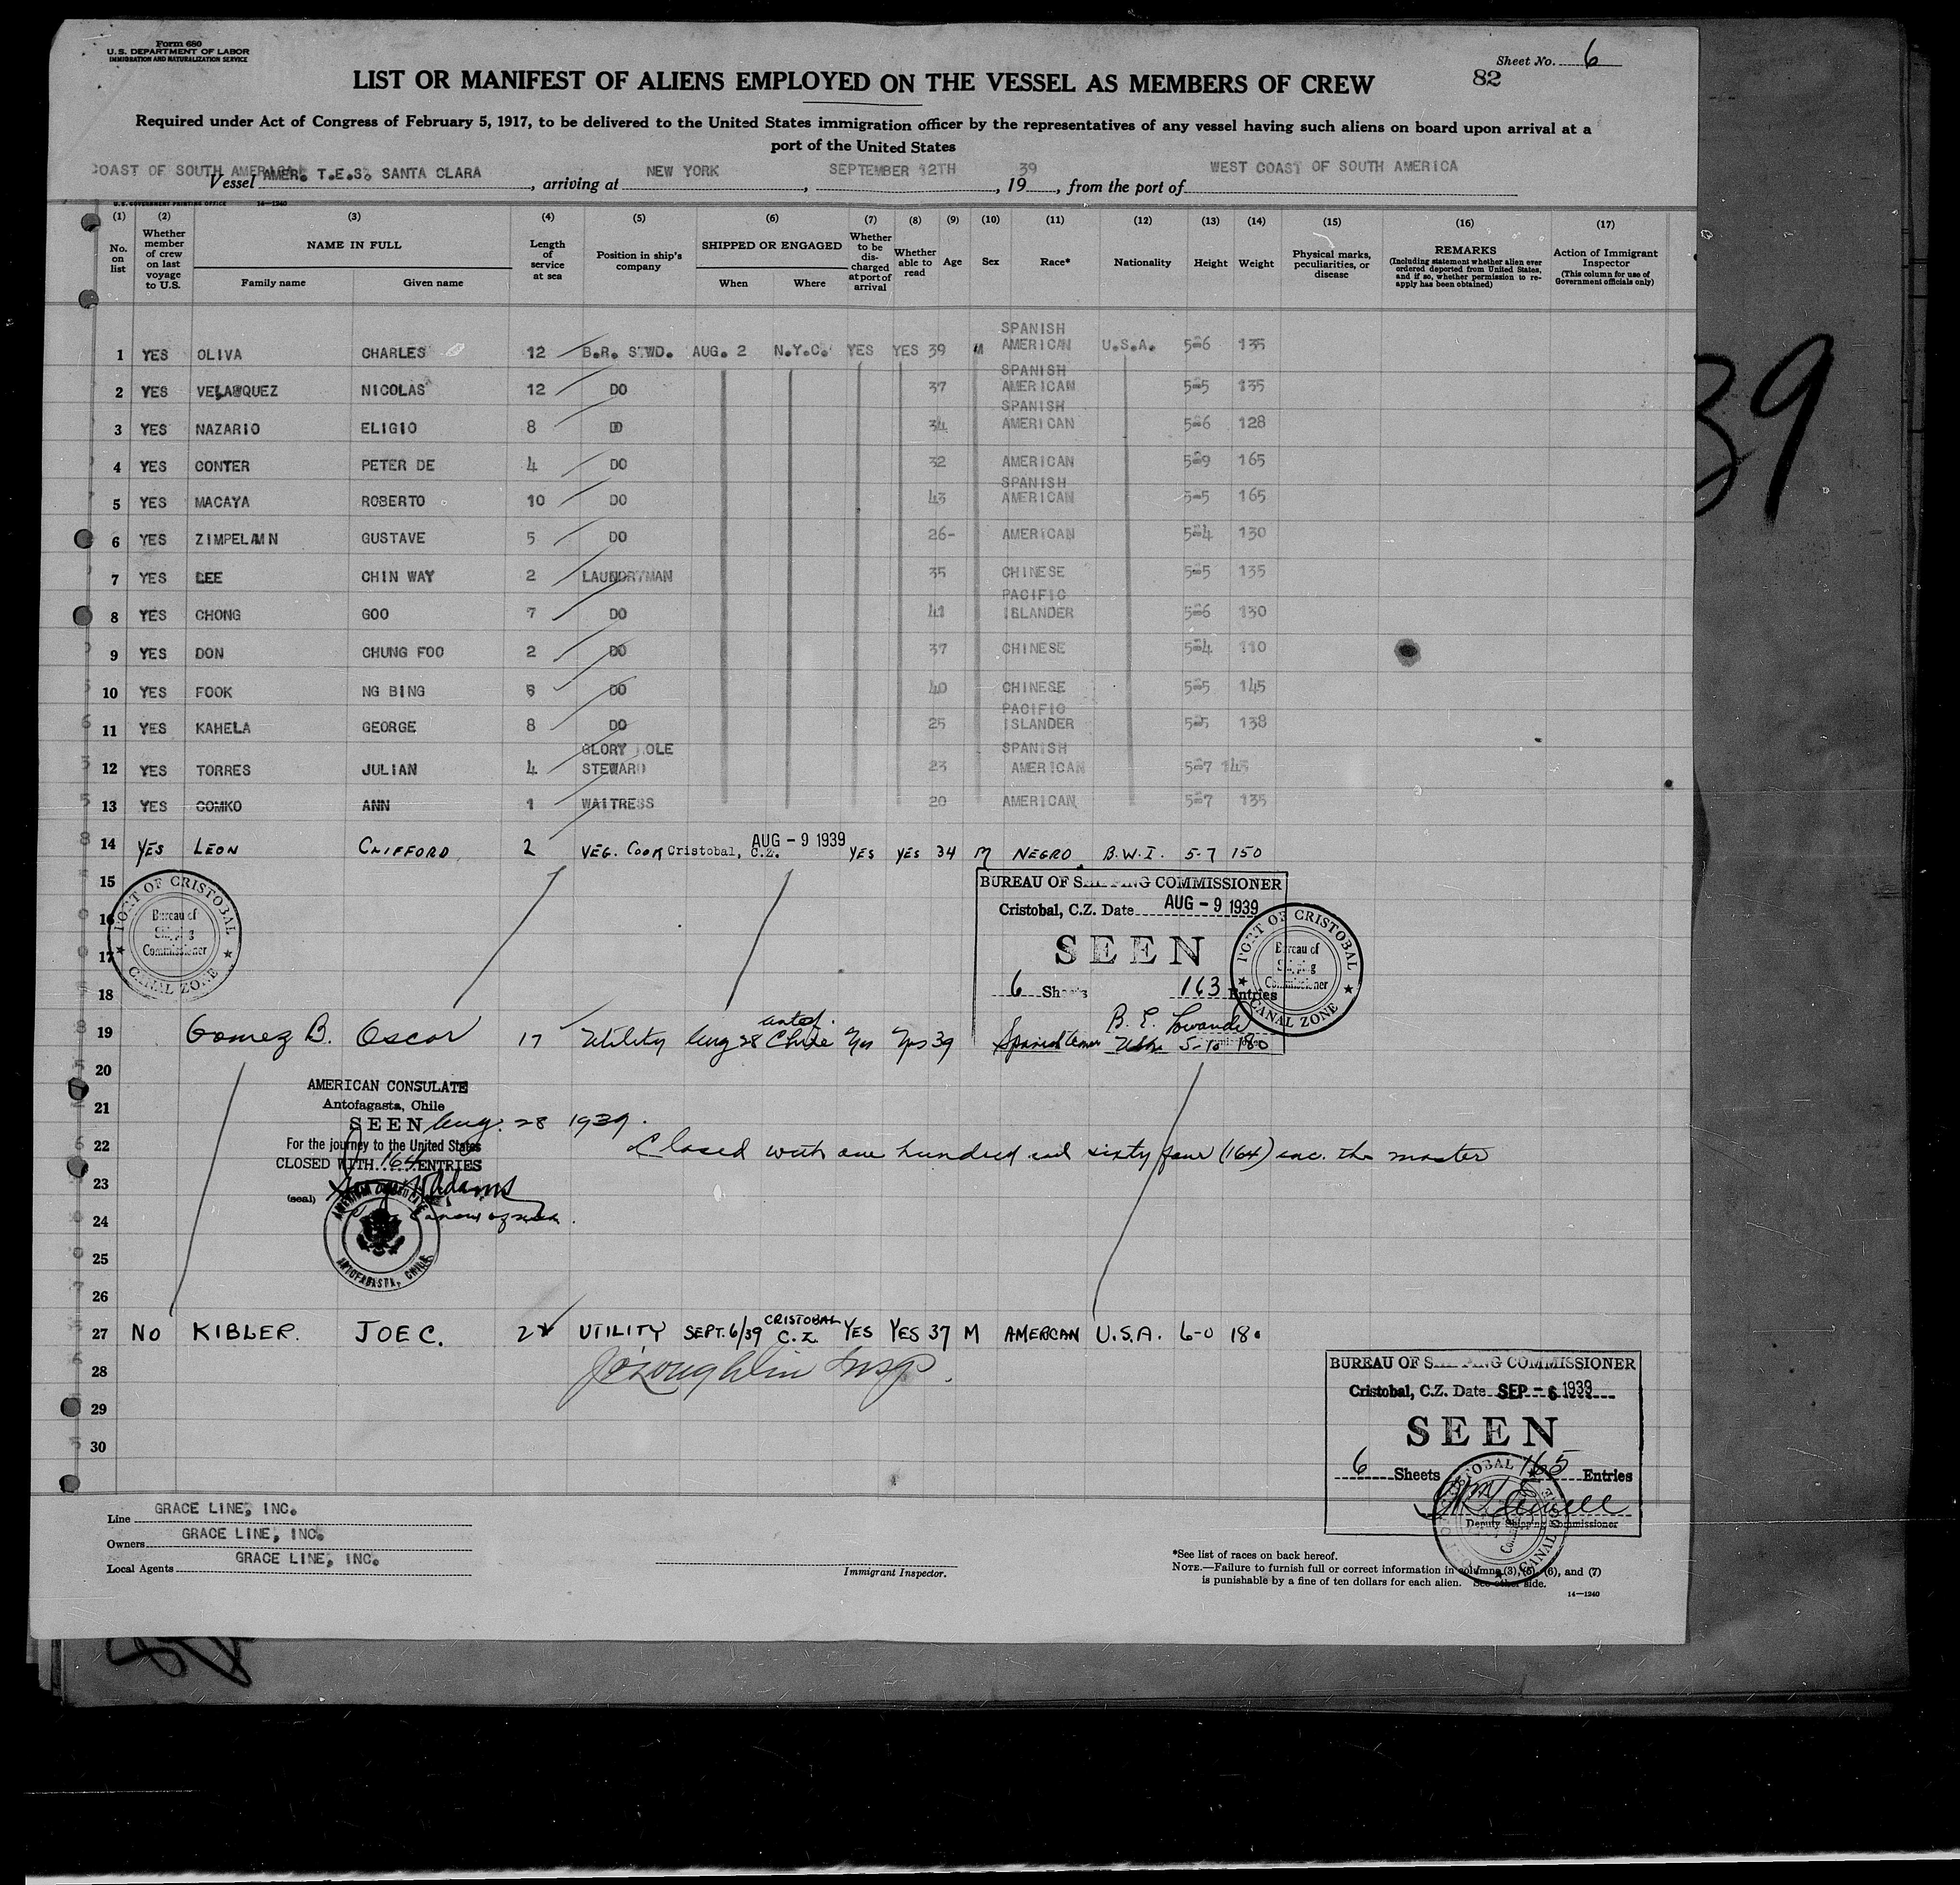 Form 680
U.S. DEPARTMENT OF LABOR
IMMIGRATION AND NATURALIZATION SERVICE
Sheet No. 6
82
LIST OR MANIFEST OF ALIENS EMPLOYED ON THE VESSEL AS MEMBERS OF CREW
Required under Act of Congress of February 5, 1917, to be delivered to the United States immigration officer by the representatives of any vessel having such aliens on board upon arrival at a
port of the United States
COAST OF SOUTH AMERICA
Vessel AMER. T.E.S. SANTA CLARA, arriving at NEW YORK, SEPTEMBER 12TH, 1939, from the port of WEST COAST OF SOUTH AMERICA
U.S. GOVERNMENT PRINTING OFFICE 14—1240
(1) (2) (3) (4) (5) (6) (7) (8) (9) (10) (11) (12) (13) (14) (15) (16) (17)
No. on list
Whether member of crew on last voyage to U.S.
NAME IN FULL
Family name Given name
Length of service at sea
Position in ship's company
SHIPPED OR ENGAGED
When Where
Whether to be discharged at port of arrival
Whether able to read
Age
Sex
Race*
Nationality
Height
Weight
Physical marks, peculiarities, or disease
REMARKS
(Including statement whether alien ever ordered deported from United States, and if so, whether permission to re-apply has been obtained)
Action of Immigrant Inspector
(This column for use of Government officials only)
1 YES OLIVA CHARLES 12 B.R. STWD. AUG. 2 N.Y.C. YES YES 39 M SPANISH AMERICAN U.S.A. 5-6 135
2 YES VELASQUEZ NICOLAS 12 DO 37 SPANISH AMERICAN 5-5 135
3 YES NAZARIO ELIGIO 8 DO 34 SPANISH AMERICAN 5-6 128
4 YES CONTER PETER DE 4 DO 32 AMERICAN 5-9 165
5 YES MACAYA ROBERTO 10 DO 43 SPANISH AMERICAN 5-5 165
6 YES ZIMPELMN GUSTAVE 5 DO 26- AMERICAN 5-4 130
7 YES LEE CHIN WAY 2 LAUNDRYMAN 35 CHINESE 5-5 135
8 YES CHONG GOO 7 DO 41 PACIFIC ISLANDER 5-6 130
9 YES DON CHUNG FOO 2 DO 37 CHINESE 5-4 110
10 YES FOOK NG BING 6 DO 40 CHINESE 5-5 145
11 YES KAHELA GEORGE 8 DO 25 PACIFIC ISLANDER 5-5 138
12 YES TORRES JULIAN 4 GLORY HOLE STEWARD 23 SPANISH AMERICAN 5-7 145
13 YES GOMKO ANN 1 WAITRESS 20 AMERICAN 5-7 135
14 YES LEON CLIFFORD 2 VEG. COOK Cristobal, C.Z. AUG - 9 1939 YES YES 34 M NEGRO B.W.I. 5-7 150
15
BUREAU OF SHIPPING COMMISSIONER
Cristobal, C.Z. Date AUG - 9 1939
PORT OF CRISTOBAL
Bureau of Shipping Commissioner
CANAL ZONE
16
17
SEEN
18
6 Sheets 163 Entries
PORT OF CRISTOBAL
Bureau of Shipping Commissioner
CANAL ZONE
19 Gomez B. Oscar 17 Utility Aug 28 Chile Yes Yes 39 Spanish Amer 5-10 180
20
AMERICAN CONSULATE
Antofagasta, Chile
21
SEEN Aug. 28 1939.
For the journey to the United States
22
Closed with one hundred and sixty four (164) inc. the master
CLOSED WITH 164 ENTRIES
23
(seal)
24
AMERICAN CONSULATE
ANTOFAGASTA, CHILE
25
26
27 NO KIBLER. JOE C. 2 UTILITY SEPT. 6/39 CRISTOBAL C.Z. YES YES 37 M AMERCAN U.S.A. 6-0 180
28
BUREAU OF SHIPPING COMMISSIONER
Cristobal, C.Z. Date SEP - 6 1939
29
SEEN
30
6 Sheets 165 Entries
Deputy Shipping Commissioner
Line GRACE LINE, INC.
Owners GRACE LINE, INC.
Local Agents GRACE LINE, INC.
Immigrant Inspector.
*See list of races on back hereof.
NOTE.—Failure to furnish full or correct information in columns (3), (5), (6), and (7)
is punishable by a fine of ten dollars for each alien. See other side.
14—1240
39